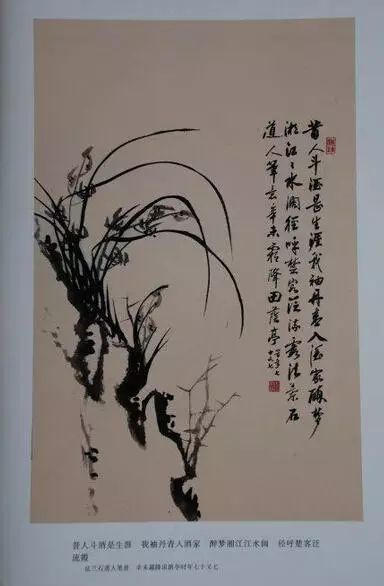 昔人斗酒是生涯我袖丹青入酒家醉梦
湘江〻水阔径呼楚客泛流霞法兰石
道人笔意辛未霜降田荫亭
时年七
十又七
昔人斗酒是生涯 我袖丹青入酒家 醉梦湘江江水阔 径呼楚客泛
流霞
法兰石道人笔意 辛未霜降田荫亭时年七十又七